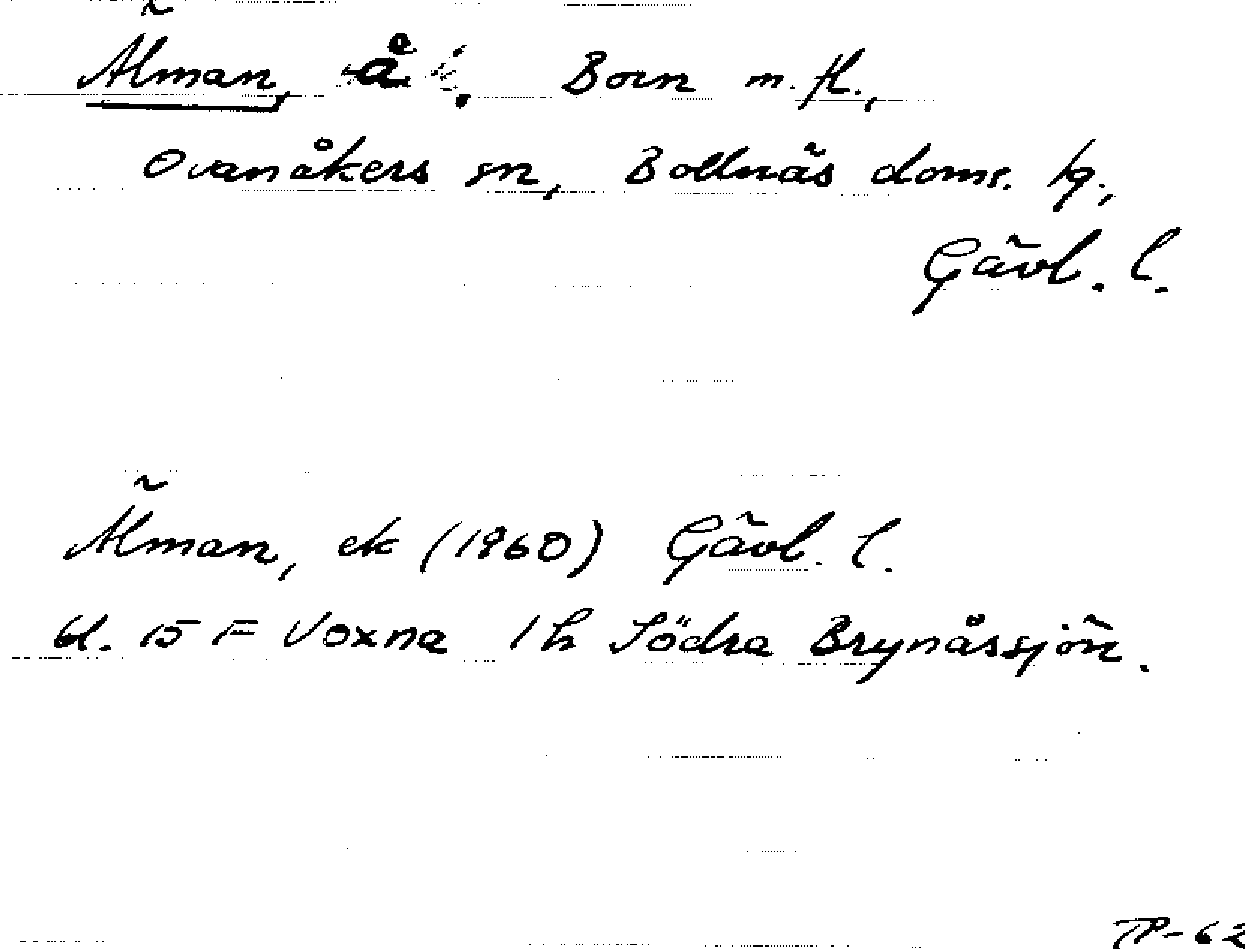 Älman, å. Born m. fl.,
Ovanåkers sn, Bollnäs doms. tg.,
Gävl. l.
Älman, ek (1960) Gävl. l.
bl. 15 F Voxna 1 h Södra Brynåssjön.
TP-62